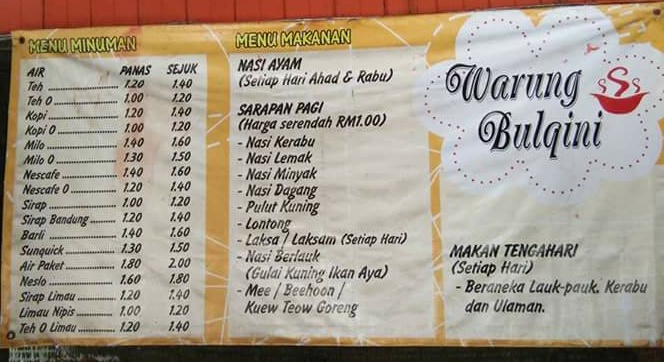 MENU MINUMAN
AIR PANAS SEJUK
Teh 1.20 1.40
Teh O 1.00 1.20
Kopi 1.20 1.40
Kopi O 1.00 1.20
Milo 1.40 1.60
Milo O 1.30 1.50
Nescafe 1.40 1.60
Nescafe O 1.20 1.40
Sirap 1.00 1.20
Sirap Bandung 1.20 1.40
Barli 1.40 1.60
Sunquick 1.30 1.50
Air Paket 1.80 2.00
Neslo 1.60 1.80
Sirap Limau 1.20 1.40
Limau Nipis 1.00 1.20
Teh O Limau 1.20 1.40
MENU MAKANAN
NASI AYAM
(Setiap Hari Ahad & Rabu)
SARAPAN PAGI
(Harga serendah RM1.00)
- Nasi Kerabu
- Nasi Lemak
- Nasi Minyak
- Nasi Dagang
- Pulut Kuning
- Lontong
- Laksa / Laksam (Setiap Hari)
- Nasi Berlauk
(Gulai Kuning Ikan Aya)
- Mee / Beehoon /
Kuew Teow Goreng
Warung
Bulqini
MAKAN TENGAHARI
(Setiap Hari)
- Beraneka Lauk-pauk. Kerabu
dan Ulaman.